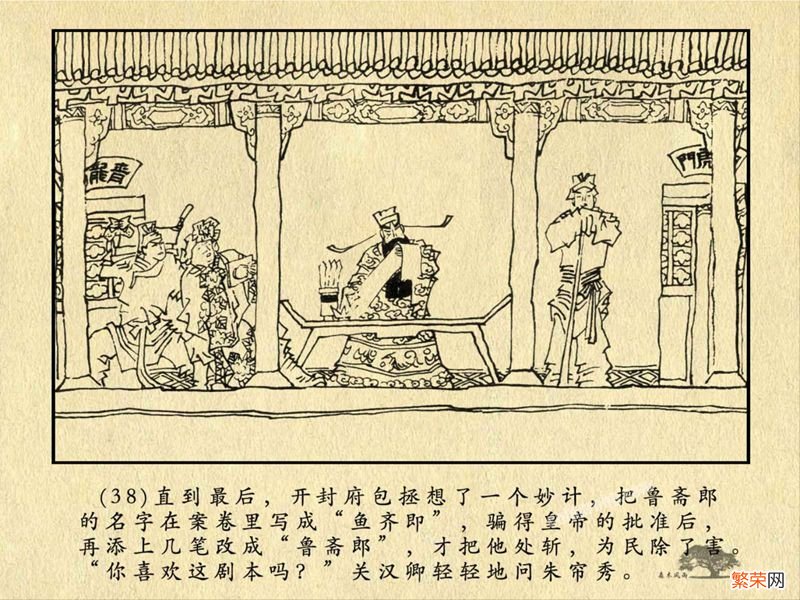 虎門
(38)直到最后，开封府包拯想了一个妙计，把鲁斋郎
的名字在案卷里写成“鱼齐即”，骗得皇帝的批准后，
再添上几笔改成“鲁斋郎”，才把他处斩，为民除了害。
“你喜欢这剧本吗？”关汉卿轻轻地问朱帘秀。
繁荣网